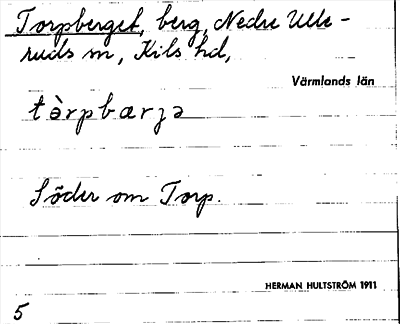 Torpberget, berg, Nedre Ulle-
ruds sn, Kils hd,
Värmlands län
tòrpbærjə
Söder om Torp.
HERMAN HULTSTRÖM 1911
5